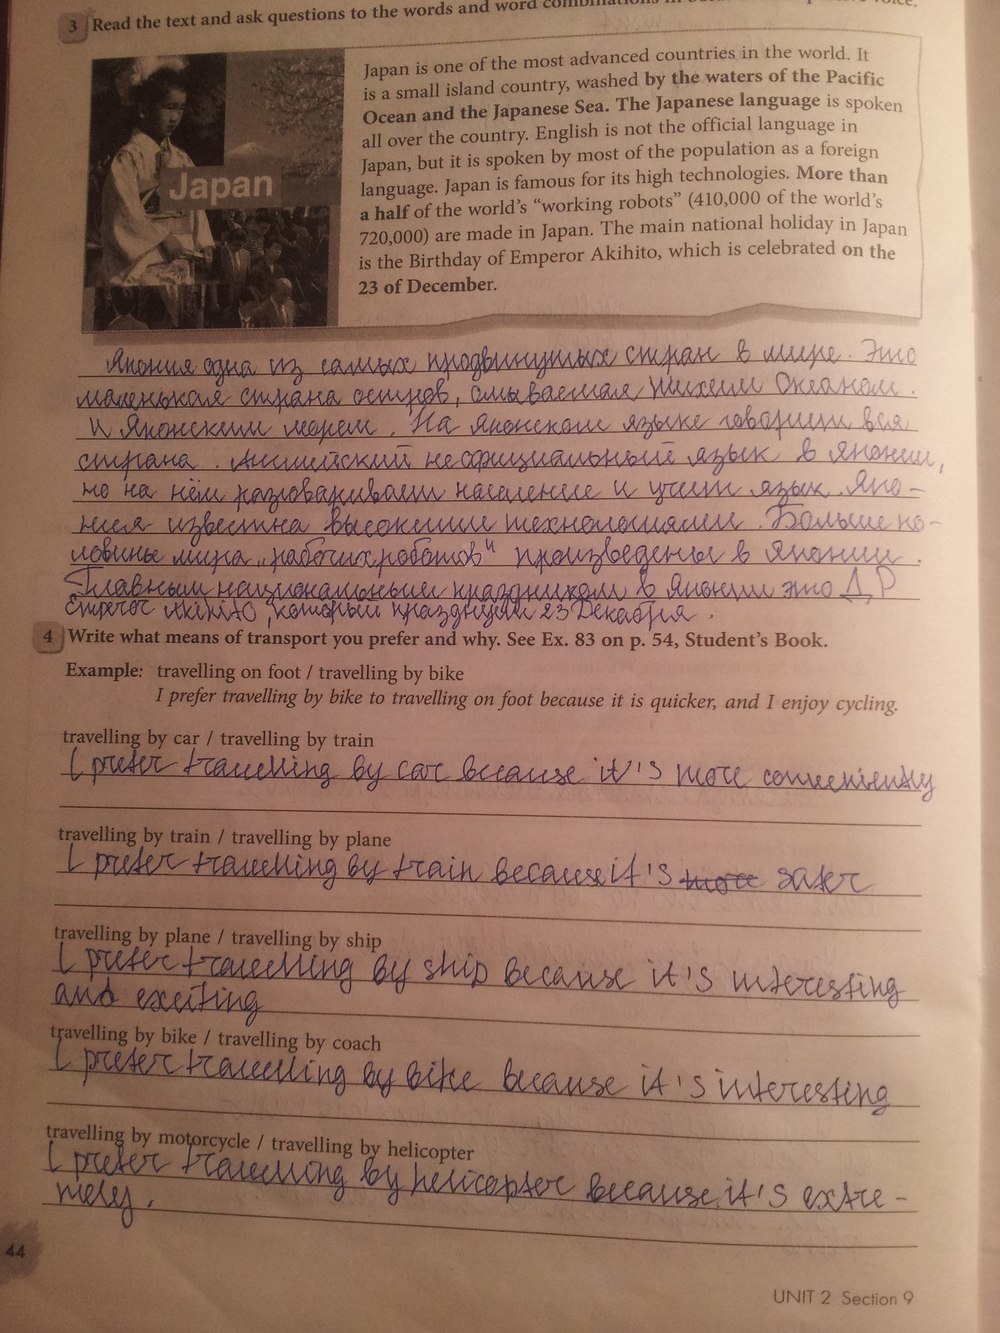 3 Read the text and ask questions to the words and word combinations in
voice.
Japan
Japan is one of the most advanced countries in the world. It
is a small island country, washed by the waters of the Pacific
Ocean and the Japanese Sea. The Japanese language is spoken
all over the country. English is not the official language in
Japan, but it is spoken by most of the population as a foreign
language. Japan is famous for its high technologies. More than
a half of the world's "working robots" (410,000 of the world's
720,000) are made in Japan. The main national holiday in Japan
is the Birthday of Emperor Akihito, which is celebrated on the
23 of December.
Япония одна из самых продвинутых стран в мире. Это
маленькая страна остров, омываемая Тихим Океаном.
и Японским морем. На Японском языке говорит вся
страна. Английский неофициальный язык в Японии,
но на нём разговаривает население и учит язык. Япо-
ния известна высокими технологиями. Больше по-
ловины мира "рабочих роботов" произведены в Японии.
Главным национальным праздником в Японии это Д,Р
Akihito, который празднуют 23 Декабря.
4 Write what means of transport you prefer and why. See Ex. 83 on p. 54, Student's Book.
Example: travelling on foot / travelling by bike
I prefer travelling by bike to travelling on foot because it is quicker, and I enjoy cycling.
travelling by car / travelling by train
I prefer travelling by car because it's more conveniently
travelling by train / travelling by plane
I prefer travelling by train because it's more safer
travelling by plane / travelling by ship
I prefer travelling by ship because it's interesting
and exciting
travelling by bike / travelling by coach
I prefer travelling by bike because it's interesting
travelling by motorcycle / travelling by helicopter
I prefer travelling by helicopter because it's extre-
mely.
44
UNIT 2 Section 9